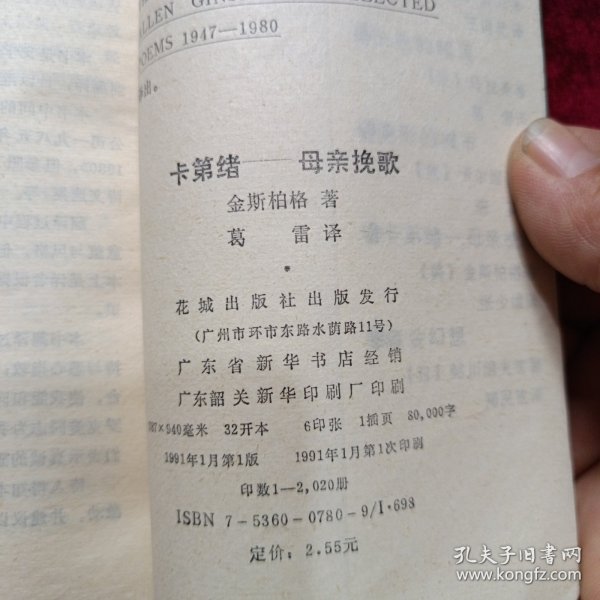 ALLEN
POEMS 1947—1980
卡第绪——母亲挽歌
金斯柏格 著
葛 雷 译
*
花城出版社出版发行
(广州市环市东路水荫路11号)
广东省新华书店经销
广东韶关新华印刷厂印刷
787×940毫米 32开本 6印张 1插页 80,000字
1991年1月第1版 1991年1月第1次印刷
印数1—2,020册
ISBN 7-5360-0780-9/I·698
定价: 2.55元
孔夫子旧书网
www.kongfz.com